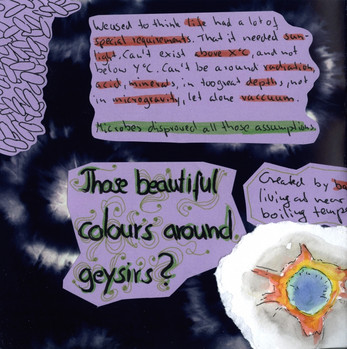 We used to think life had a lot of
special requirements. That it needed sun-
light. Can't exist above X°C, and not
below Y°C. Can't be around radiation,
acid, minerals, in too great depths, not
in microgravity, let alone vacuum.
Microbes disproved all those assumptions.
Those beautiful
colours around
geysirs?
Created by ba
living at near
boiling tempe